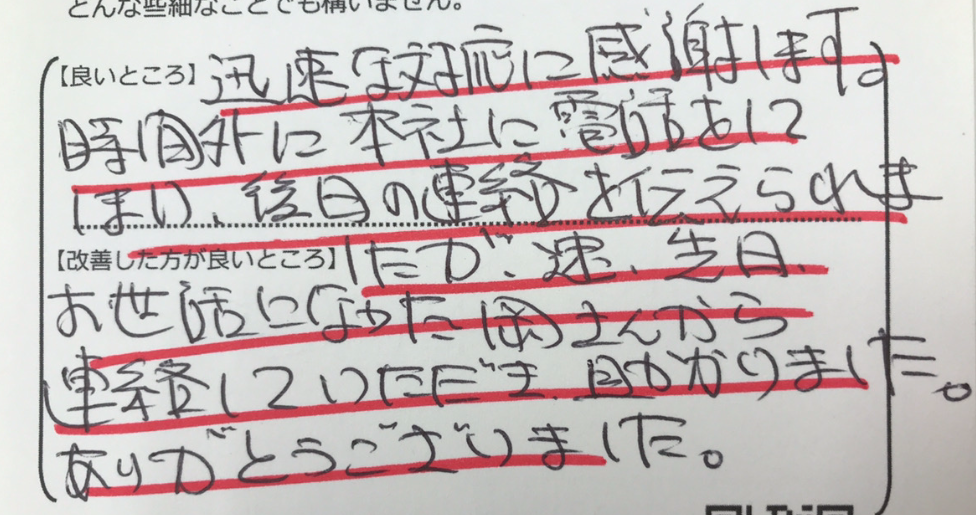 どんな些細なことでも構いません。
【良いところ】迅速な対応に感謝します。
時間外に本社に電話をして
しまい、後日の連絡を伝えられま
【改善した方が良いところ】したが、速、先日、
お世話になった岡さんから
連絡していただき、助かりました。
ありがとうございました。